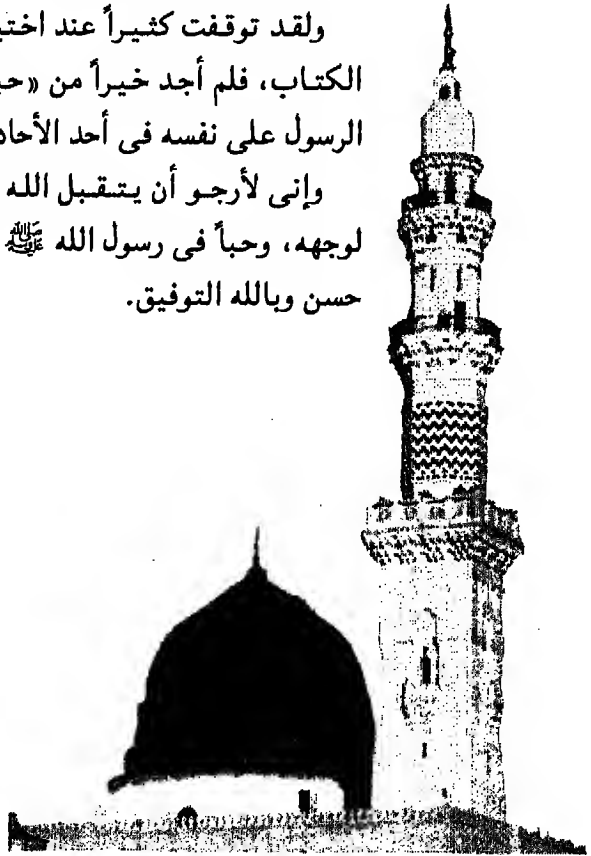 ولقد توقفت كثيراً عند
الكتاب، فلم أجد خيراً من
الرسول على نفسه فى أحد
وإنى لأرجو أن يتقبل الله
لوجهه، وحباً فى رسول الله ﷺ
حسن وبالله التوفيق.